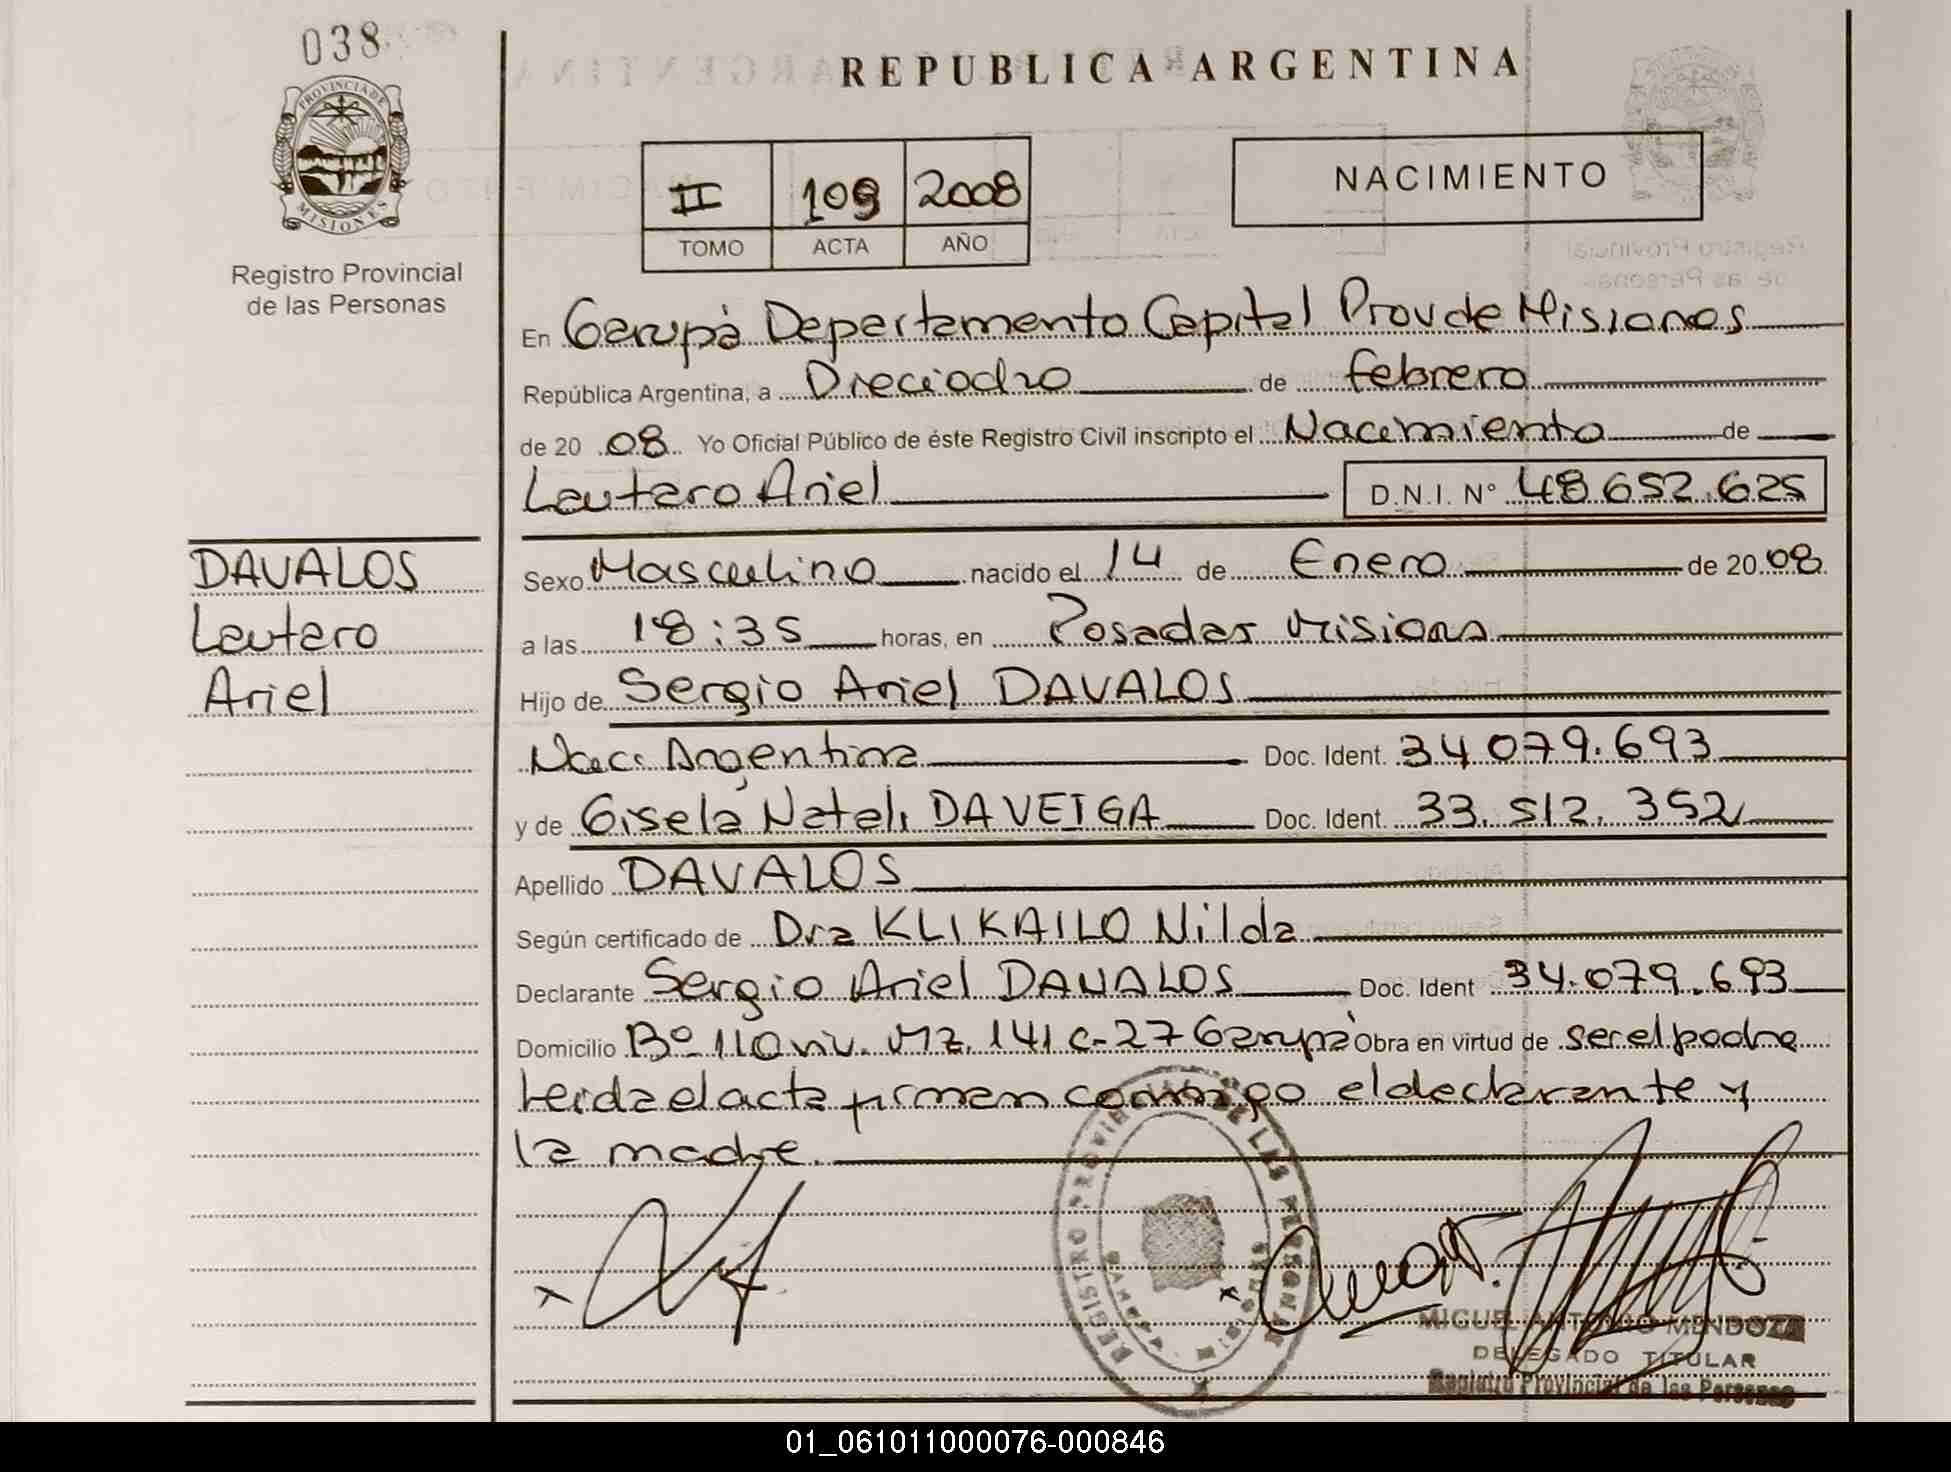 038
PROVINCIA DE
MISIONES
Registro Provincial
de las Personas
REPUBLICA ARGENTINA
II 109 2008
TOMO ACTA AÑO
NACIMIENTO
En Garupá Departamento Capital Prov de Misiones
República Argentina, a Dieciocho de febrero
de 20 08 Yo Oficial Público de éste Registro Civil inscripto el Nacimiento de
Lautaro Ariel D.N.I. N° 48.652.625
DAVALOS
Lautaro
Ariel
Sexo Masculino nacido el 14 de Enero de 20 08
a las 18:35 horas, en Posadas Misiones
Hijo de Sergio Ariel DAVALOS
Nac. Argentina Doc. Ident. 34.079.693
y de Gisela Natali DAVEIGA Doc. Ident. 33.512.352
Apellido DAVALOS
Según certificado de Dra KLIKAILO Nilda
Declarante Sergio Ariel DAVALOS Doc. Ident 34.079.693
Domicilio Bº 110 viv. Mz. 141 c-27 Garupá Obra en virtud de ser el padre
Leida el acta firman conmigo el declarante y
la madre.
REGISTRO PROVINCIAL DE LAS PERSONAS
MIGUEL ANTONIO MENDOZA
DELEGADO TITULAR
Registro Provincial de las Personas
01_061011000076-000846